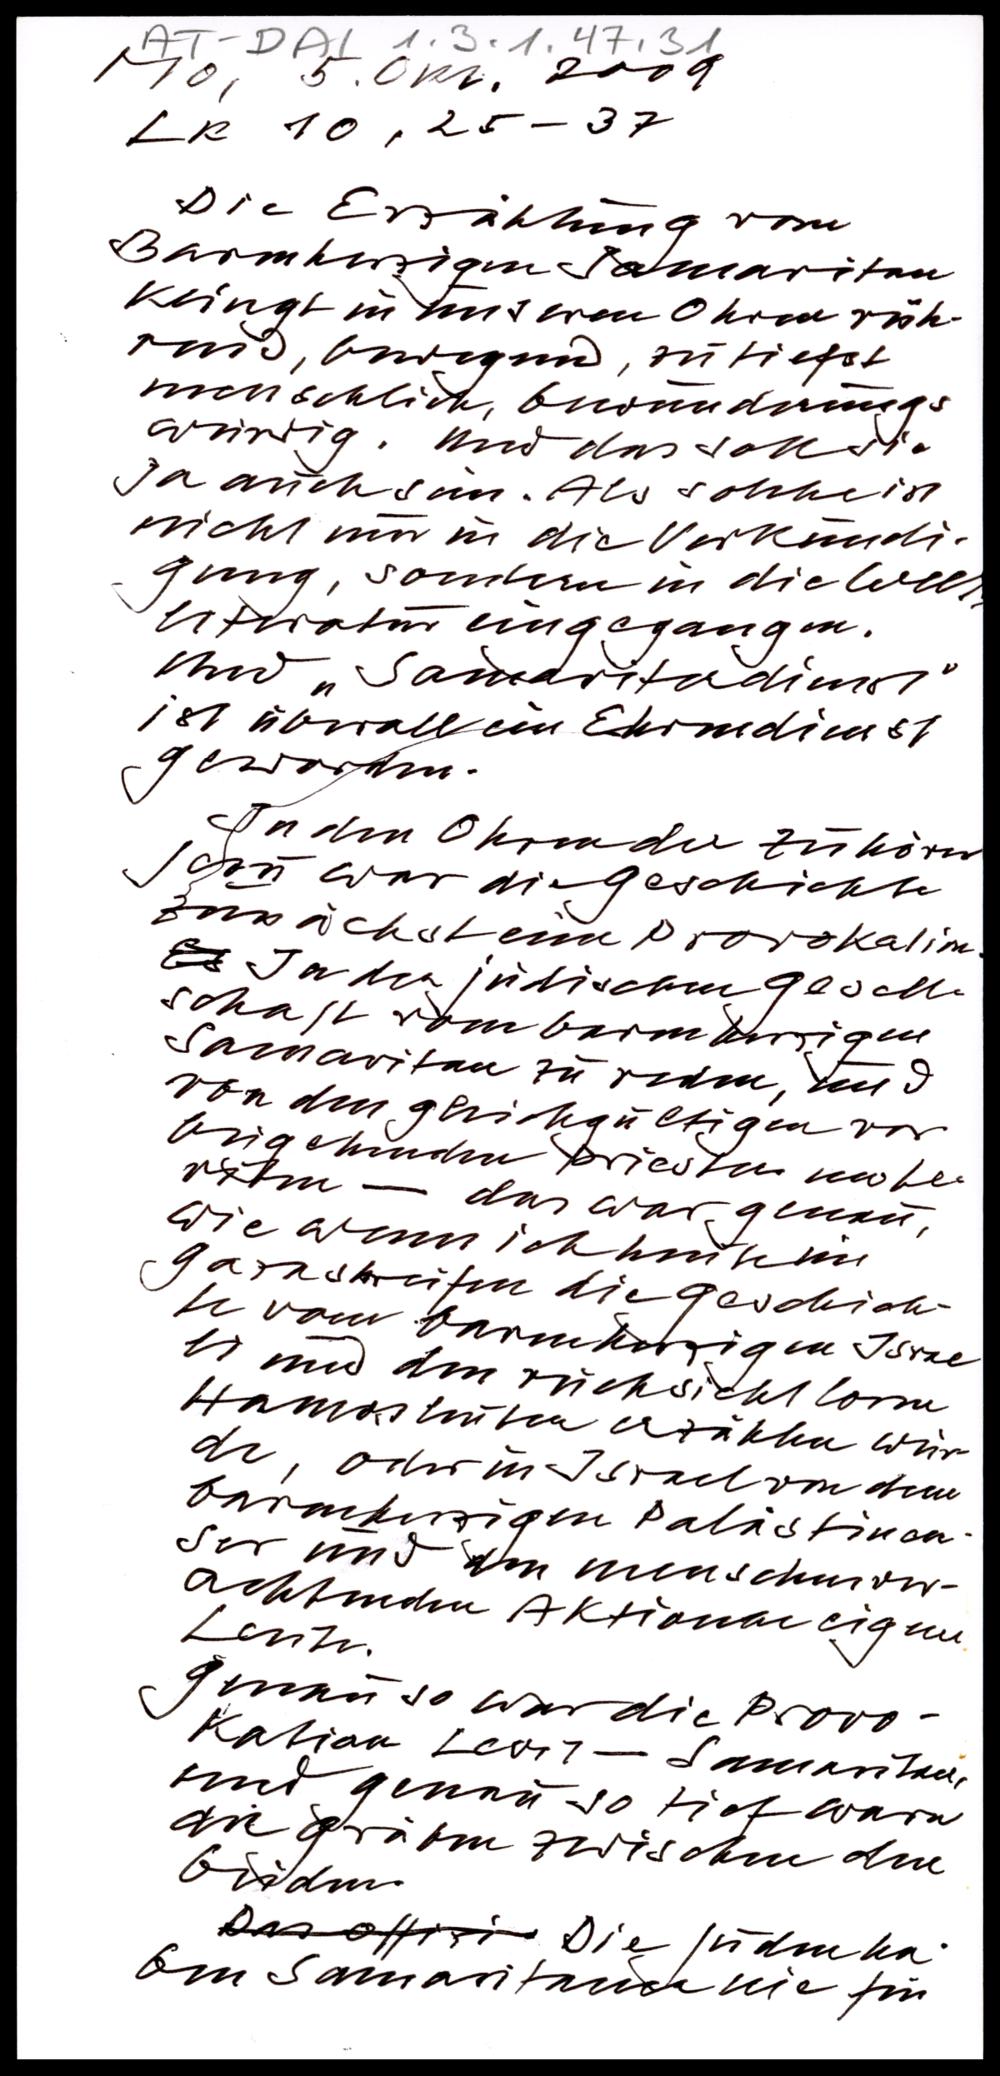 AT-DAI 1.3.1.47.31
Mo, 5. Okt. 2009
Lk 10, 25-37
Die Erzählung vom
Barmherzigen Samariter
klingt in unseren Ohren rüh-
rend, bewegend, zutiefst
menschlich, bewunderungs
würdig. Und das soll sie
ja auch sein. Als solche ist
nicht nur in die Verkündi-
gung, sondern in die Welt-
literatur eingegangen.
Und „Samariterdienst"
ist überall ein Ehrendienst
geworden.
In den Ohren der Zuhörer
Jesu war die Geschichte
zunächst eine Provokation.
Es In der jüdischen Gesell-
schaft vom barmherzigen
Samariter zu reden, und
von den gleichgültigen vor
beigehenden Priester und Le-
viten — das war genau,
wie wenn ich heute im
Gazastreifen die Geschich-
te vom barmherzigen Israe
li und den rücksichtlosen
Hamasleuten erzählen wür-
de, oder in Israel von dem
barmherzigen Palästinen-
ser und den menschenver-
achtenden Aktionen eigener
Leute.
Genau so war die Provo-
kation Levit — Samariter,
und genau so tief waren
die Gräben zwischen den
beiden.
Das offizi Die Juden ha-
ben Samaritaner nie für